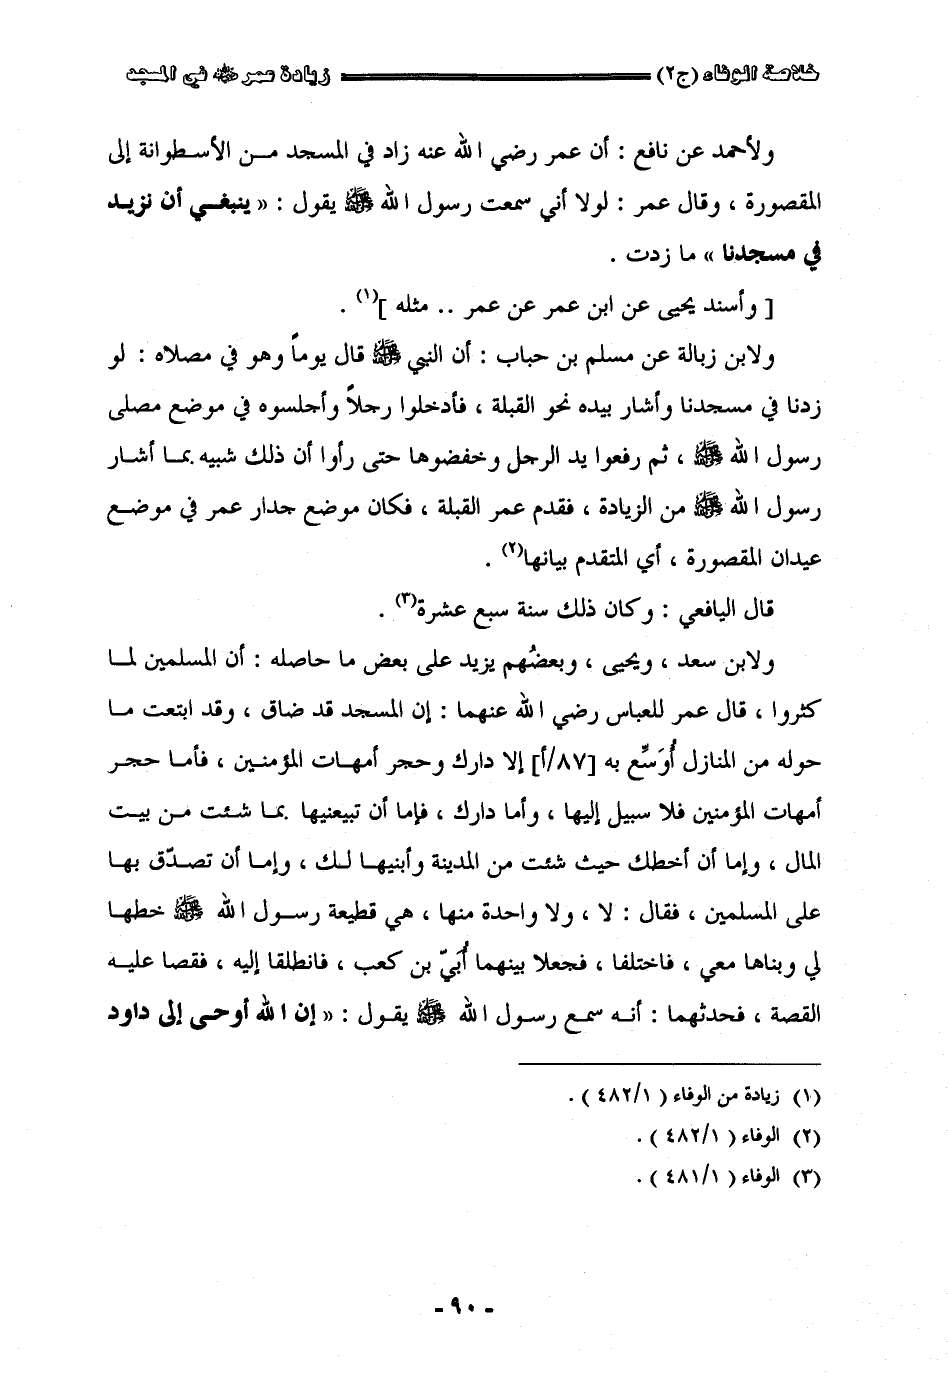 خلاصة الوفاء (ج٢) زيادة عمر ﷺ في المسجد
ولأحمد عن نافع : أن عمر رضي الله عنه زاد في المسجد مــن الأسطوانة إلى
المقصورة ، وقال عمر : لولا أني سمعت رسول الله ﷺ يقول : « ينبغــي أن نزيــد
في مسجدنا » ما زدت .
[ وأسند يحيى عن ابن عمر عن عمر .. مثله ](١) .
ولابن زبالة عن مسلم بن حباب : أن النبي ﷺ قال يوماً وهو في مصلاه : لو
زدنا في مسجدنا وأشار بيده نحو القبلة ، فأدخلوا رجلاً وأجلسوه في موضع مصلى
رسول الله ﷺ ، ثم رفعوا يد الرجل وخفضوها حتى رأوا أن ذلك شبيه بمــا أشار
رسول الله ﷺ من الزيادة ، فقدم عمر القبلة ، فكان موضع جدار عمر في موضــع
عيدان المقصورة ، أي المتقدم بيانها(٢) .
قال اليافعي : وكان ذلك سنة سبع عشرة(٣) .
ولابن سعد ، ويحيى ، وبعضُهم يزيد على بعض ما حاصله : أن المسلمين لمــا
كثروا ، قال عمر للعباس رضي الله عنهما : إن المسجد قد ضاق ، وقد ابتعت مــا
حوله من المنازل أُوَسِّع به [٨٧/أ] إلا دارك وحجر أمهــات المؤمنــين ، فأمــا حجــر
أمهات المؤمنين فلا سبيل إليها ، وأما دارك ، فإما أن تبيعنيها بمــا شــئت مــن بيــت
المال ، وإما أن أخطك حيث شئت من المدينة وأبنيهــا لــك ، وإمــا أن تصــدّق بهــا
على المسلمين ، فقال : لا ، ولا واحدة منها ، هي قطيعة رســول الله ﷺ خطهــا
لي وبناها معي ، فاختلفا ، فجعلا بينهما أُبَيّ بن كعب ، فانطلقا إليه ، فقصا عليــه
القصة ، فحدثهما : أنــه سمــع رســول الله ﷺ يقــول : « إن الله أوحــى إلى داود
(١) زيادة من الوفاء ( ٤٨٢/١ ) .
(٢) الوفاء ( ٤٨٢/١ ) .
(٣) الوفاء ( ٤٨١/١ ) .
- ٩٠ -